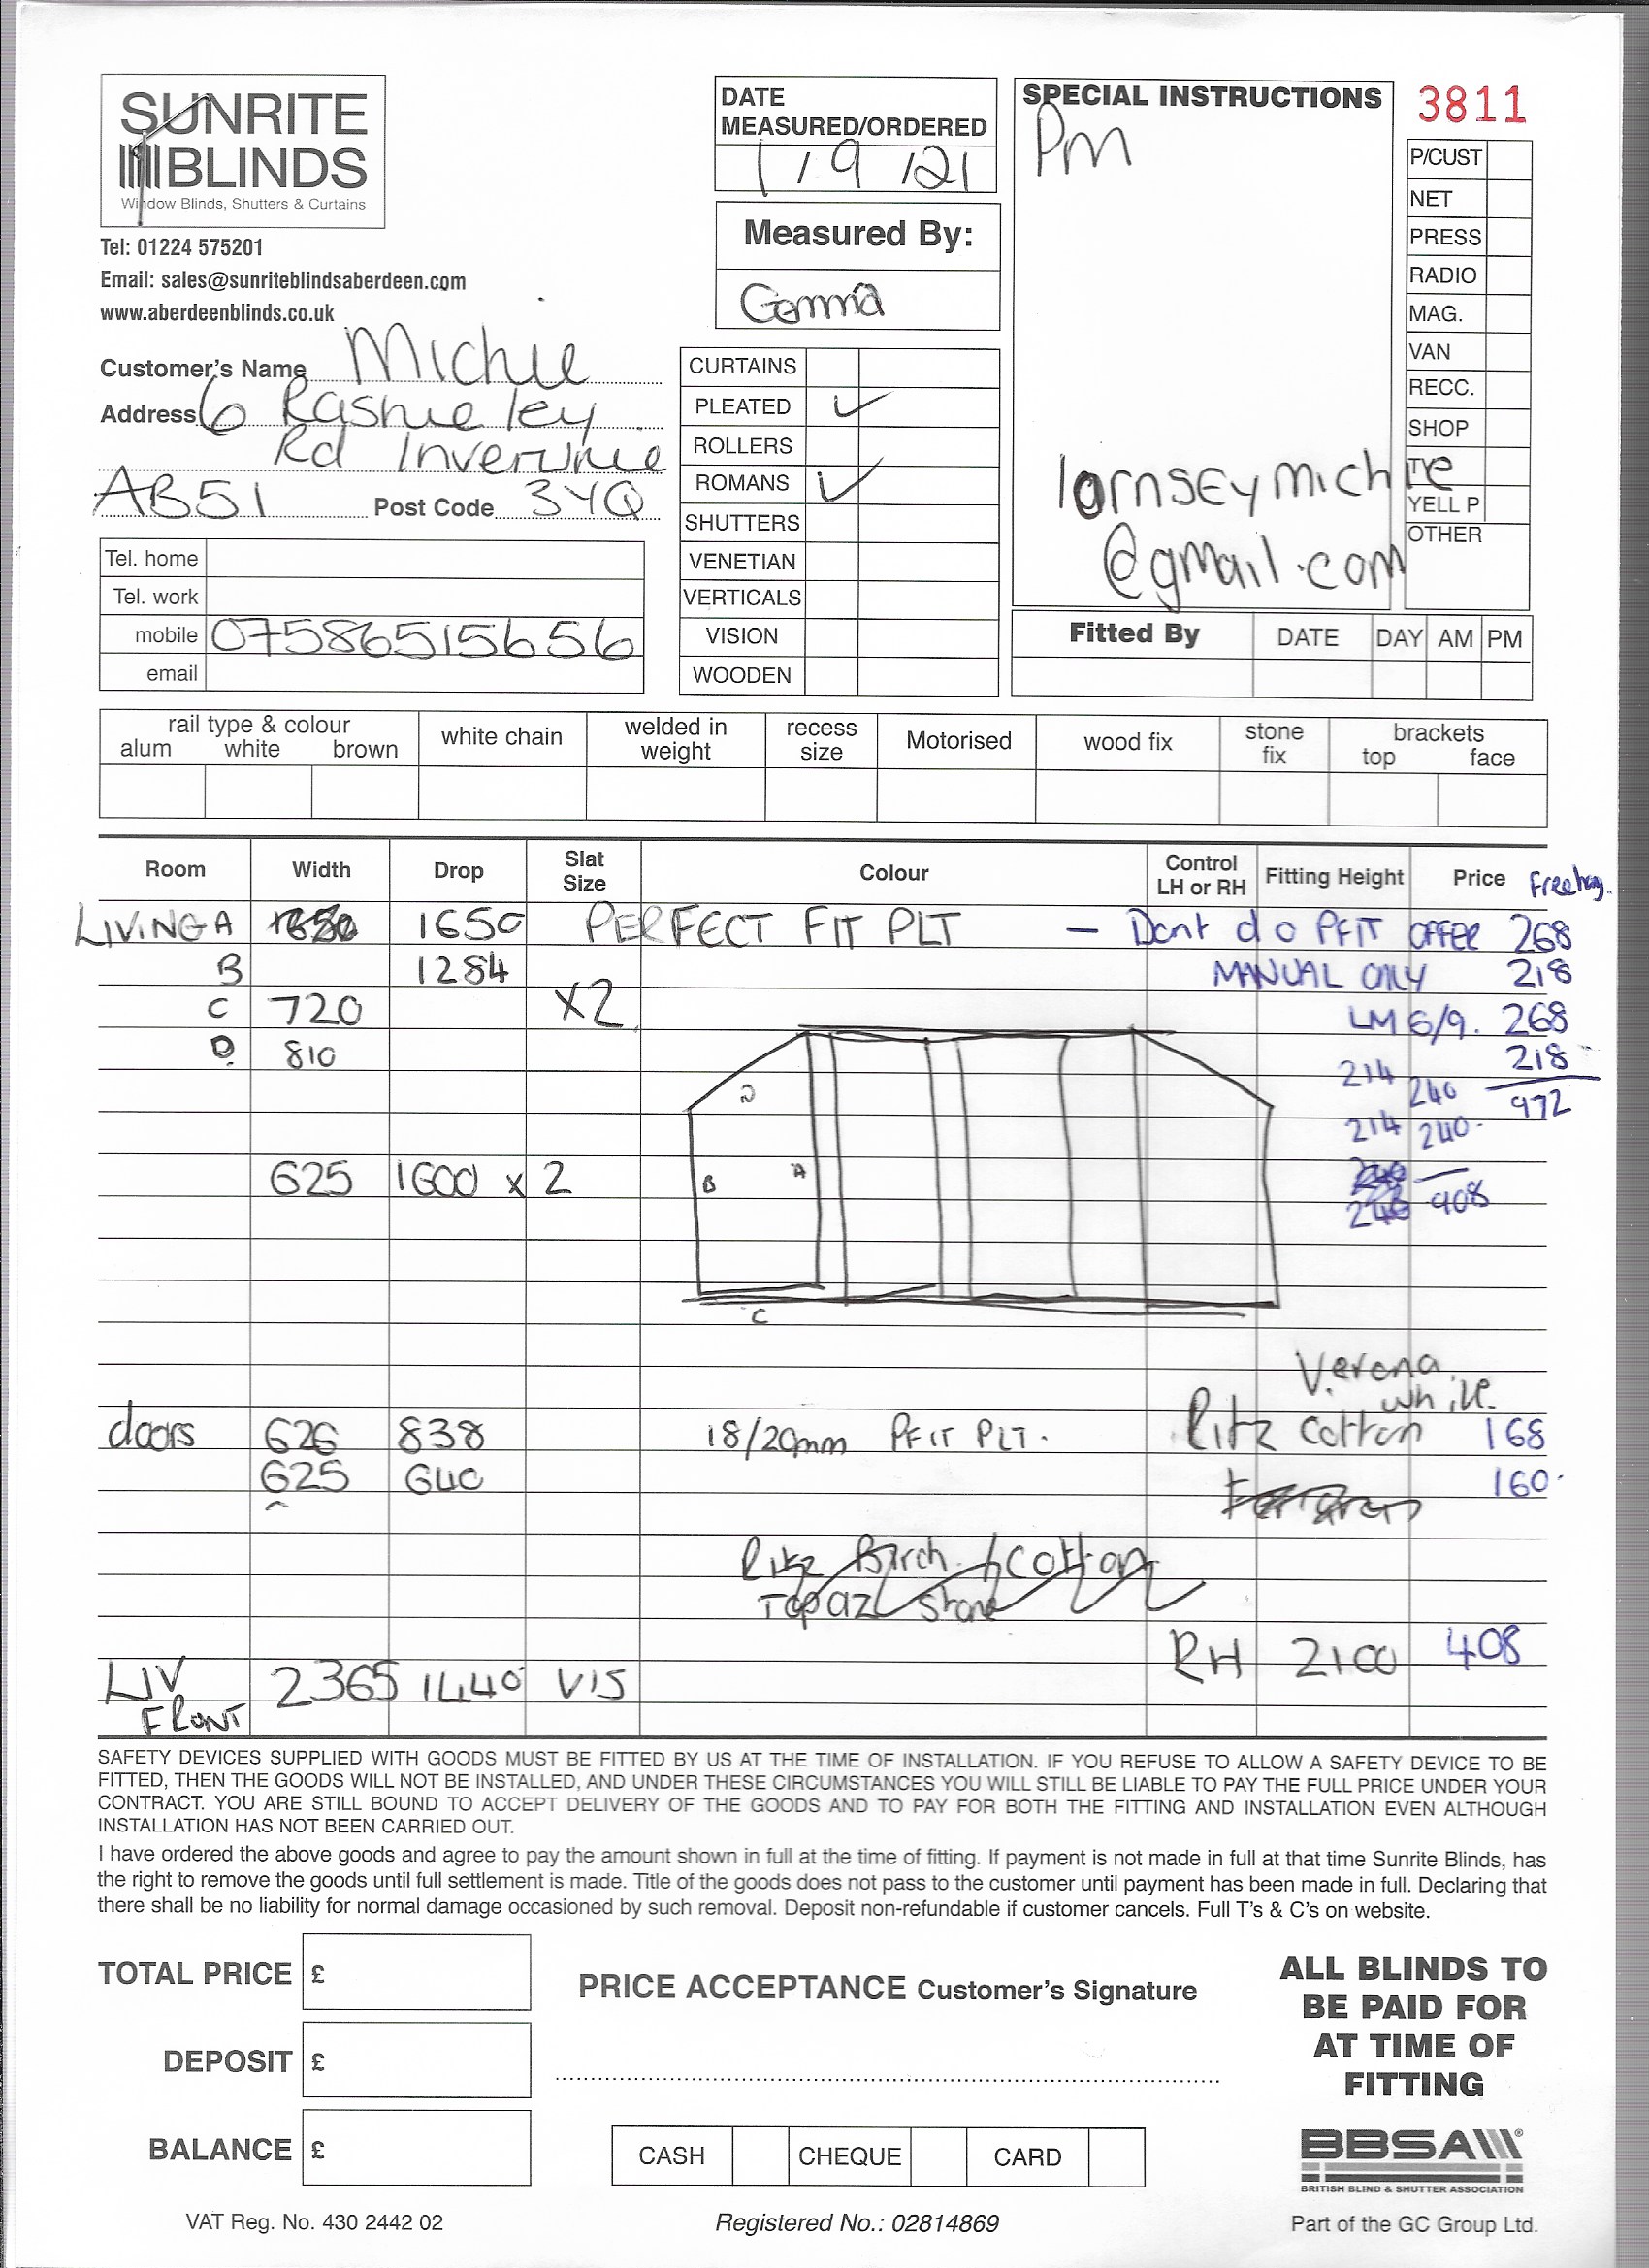 SUNRITE
BLINDS
Window Blinds, Shutters & Curtains
Tel: 01224 575201
Email: sales@sunriteblindsaberdeen.com
www.aberdeenblinds.co.uk
DATE
MEASURED/ORDERED
1/9/21
Measured By:
Gemma
SPECIAL INSTRUCTIONS
PM
lornseymichie
@gmail.com
3811
P/CUST
NET
PRESS
RADIO
MAG.
VAN
RECC.
SHOP
TV
YELL P
OTHER
Customer's Name Michie
Address 6 Rashieley
Rd Inverurie
AB51 Post Code 3YQ
Tel. home
Tel. work
mobile 07586515656
email
CURTAINS
PLEATED ✓
ROLLERS
ROMANS ✓
SHUTTERS
VENETIAN
VERTICALS
VISION
WOODEN
Fitted By DATE DAY AM PM
rail type & colour
alum white brown
white chain
welded in
weight
recess
size
Motorised
wood fix
stone
fix
brackets
top face
Room Width Drop Slat
Size Colour Control
LH or RH Fitting Height Price
LIVING A 1650 PERFECT FIT PLT — Dont do PFIT OFFER 268
B 1284 MANUAL ONLY 218
C 720 X2 LM 6/9. 268
D 810 218
214 240 972
214 240
908
D
B A
C
625 1600 x 2
Verona
white
doors 626 838 18/20mm PFIT PLT. Ritz Cotton 168
625 640 160
Ritz Birch / Cotton
Topaz Stone
RH 2100 408
LIV 2365 1440 VIS
FRONT
SAFETY DEVICES SUPPLIED WITH GOODS MUST BE FITTED BY US AT THE TIME OF INSTALLATION. IF YOU REFUSE TO ALLOW A SAFETY DEVICE TO BE
FITTED, THEN THE GOODS WILL NOT BE INSTALLED, AND UNDER THESE CIRCUMSTANCES YOU WILL STILL BE LIABLE TO PAY THE FULL PRICE UNDER YOUR
CONTRACT. YOU ARE STILL BOUND TO ACCEPT DELIVERY OF THE GOODS AND TO PAY FOR BOTH THE FITTING AND INSTALLATION EVEN ALTHOUGH
INSTALLATION HAS NOT BEEN CARRIED OUT.
I have ordered the above goods and agree to pay the amount shown in full at the time of fitting. If payment is not made in full at that time Sunrite Blinds, has
the right to remove the goods until full settlement is made. Title of the goods does not pass to the customer until payment has been made in full. Declaring that
there shall be no liability for normal damage occasioned by such removal. Deposit non-refundable if customer cancels. Full T's & C's on website.
TOTAL PRICE £
DEPOSIT £
BALANCE £
PRICE ACCEPTANCE Customer's Signature
CASH CHEQUE CARD
ALL BLINDS TO
BE PAID FOR
AT TIME OF
FITTING
BBSA®
BRITISH BLIND & SHUTTER ASSOCIATION
VAT Reg. No. 430 2442 02
Registered No.: 02814869
Part of the GC Group Ltd.